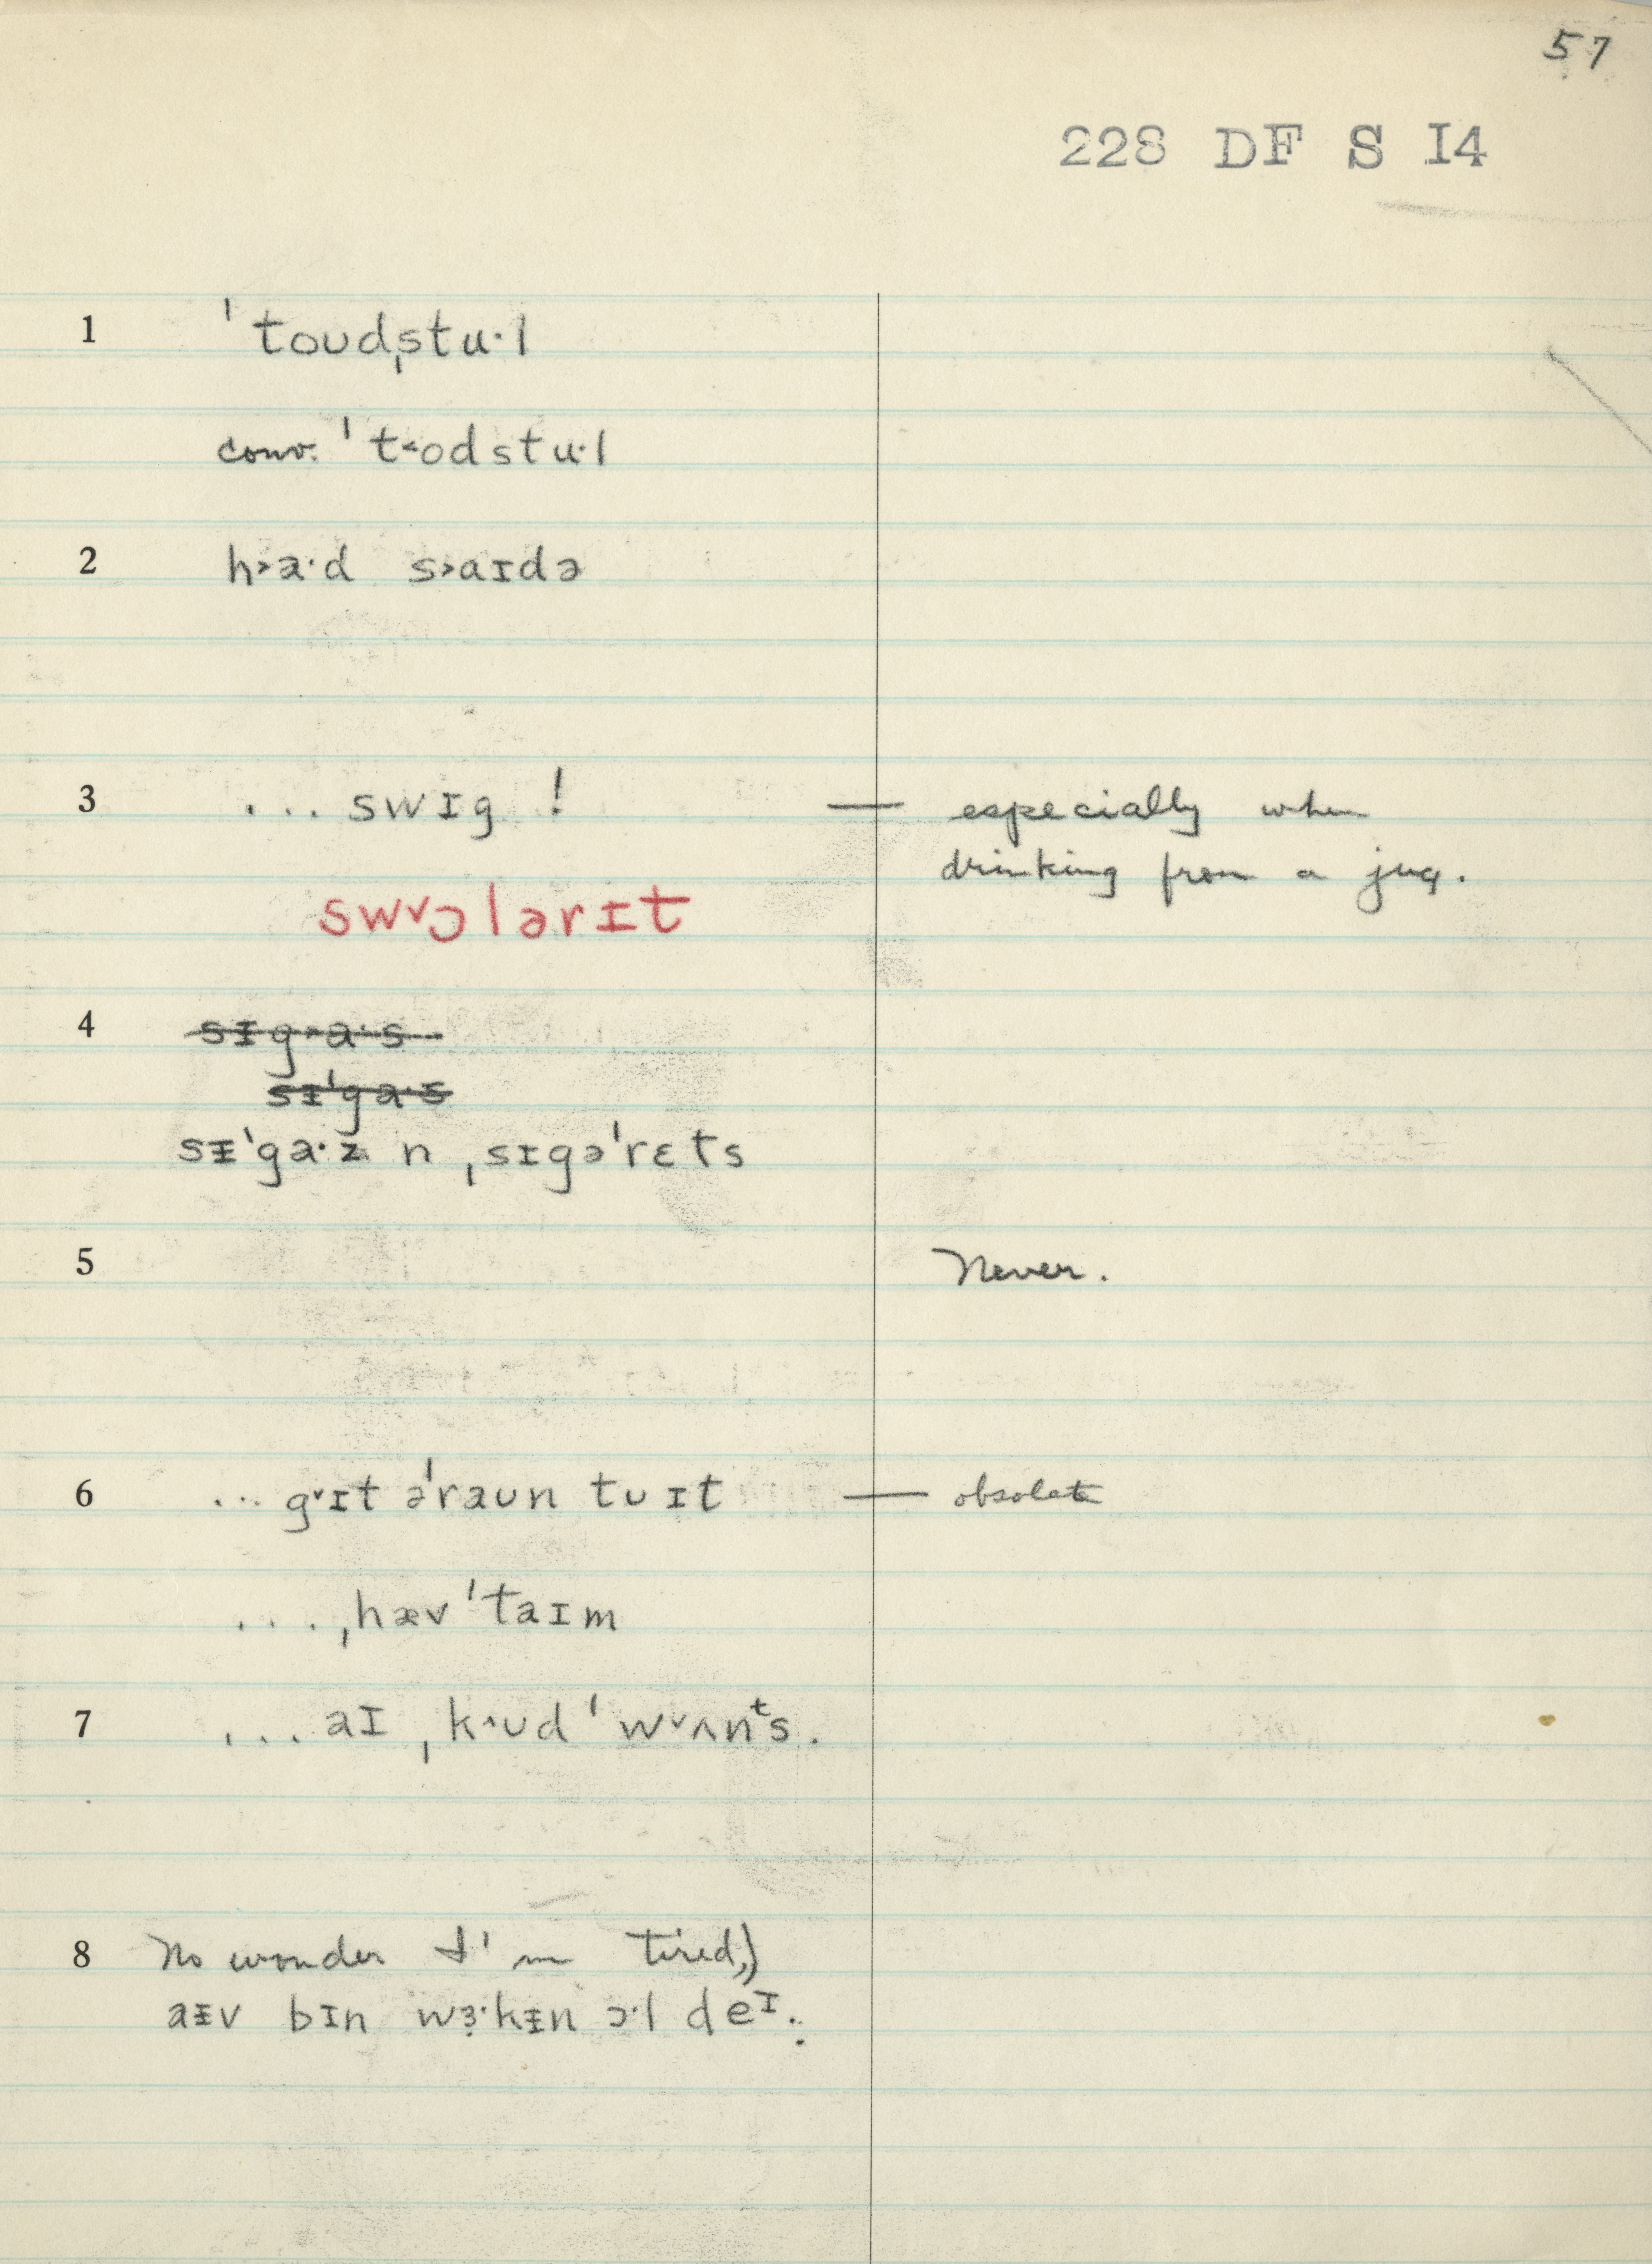 57
228 DF S I4
1 ˈtoʊdˌstu·l
conv. ˈt˂odstu·l
2 h˃a·d s˃aɪdə
3 ... swɪg ! — especially when
drinking from a jug.
sw˅ɔlərɪt
4 sɪg˃a·s
sɪˈga·s
sᵻˈga·z n ˌsɪgəˈrɛts
5 Never.
6 ... g˅ɪt əˈraʊn tʊ ɪt — obsolete
... ˌhæv ˈtaɪm
7 ... aɪ ˌk˄ʊd ˈw˅ʌnᵗs.
8 No wonder I'm tired,)
aᵻv bɪn wɜ·kᵻn ɔ·l deᶦ.